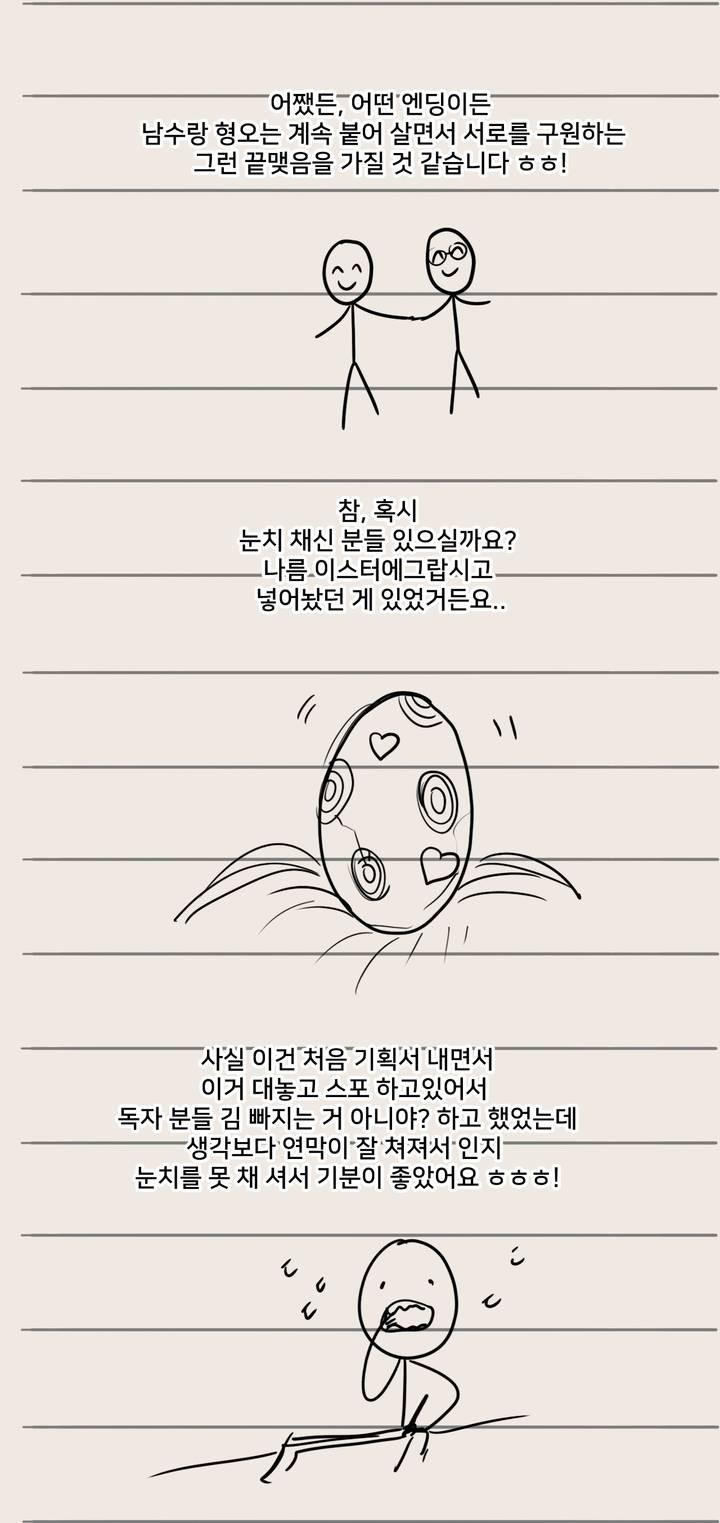 어쨌든, 어떤 엔딩이든
남수랑 형오는 계속 붙어 살면서 서로를 구원하는
그런 끝맺음을 가질 것 같습니다 ㅎㅎ!
참, 혹시
눈치 채신 분들 있으실까요?
나름 이스터에그랍시고
넣어놨던 게 있었거든요..
사실 이건 처음 기획서 내면서
이거 대놓고 스포 하고있어서
독자 분들 김 빠지는 거 아니야? 하고 했었는데
생각보다 연막이 잘 쳐져서 인지
눈치를 못 채 셔서 기분이 좋았어요 ㅎㅎㅎ!